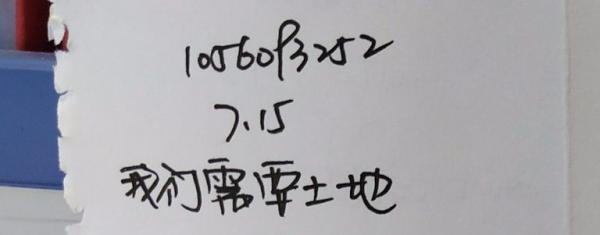 1056093252
7.15
我们需要土地